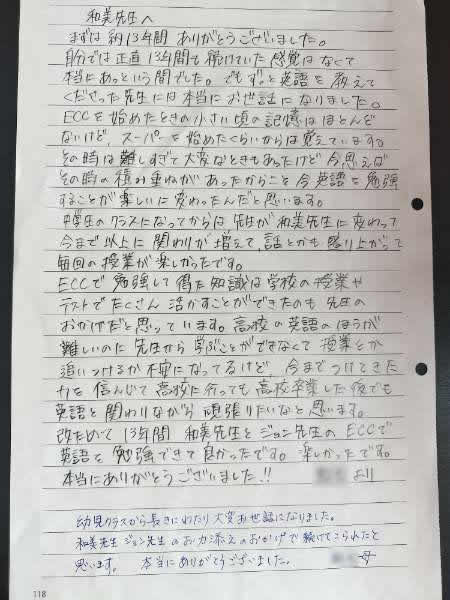 和美先生へ
まずは約13年間ありがとうございました。
自分では正直13年間も続けていた感覚はなくて
本当にあっという間でした。でもずっと英語を教えて
くださった先生には本当にお世話になりました。
ECCを始めたときの小さい頃の記憶はほとんど
ないけど、スーパーを始めたくらいからは覚えています。
その時は難しすぎて大変なときもあったけど今思えば
その時の積み重ねがあったからこそ今英語を勉強
することが楽しいに変わったんだと思います。
中学生のクラスになってからは先生が和美先生に変わって
今まで以上に関わりが増えて、話とかも盛り上がって
毎回の授業が楽しかったです。
ECCで勉強して得た知識は学校の授業や
テストでたくさん活かすことができたのも先生の
おかげだと思っています。高校の英語のほうが
難しいのに先生から学ぶことができなくて授業とか
追いつけるか不安になってるけど、今までつけてきた
力を信じて高校に行っても高校卒業した後でも
英語と関わりながら頑張りたいなと思います。
改ためて13年間和美先生とジョン先生のECCで
英語を勉強できて良かったです。楽しかったです。
本当にありがとうございました!!
より
幼児クラスから長きにわたり大変お世話になりました。
和美先生ジョン先生のお力添えのおかげで続けてこられたと
思います。本当にありがとうございました。
母
118